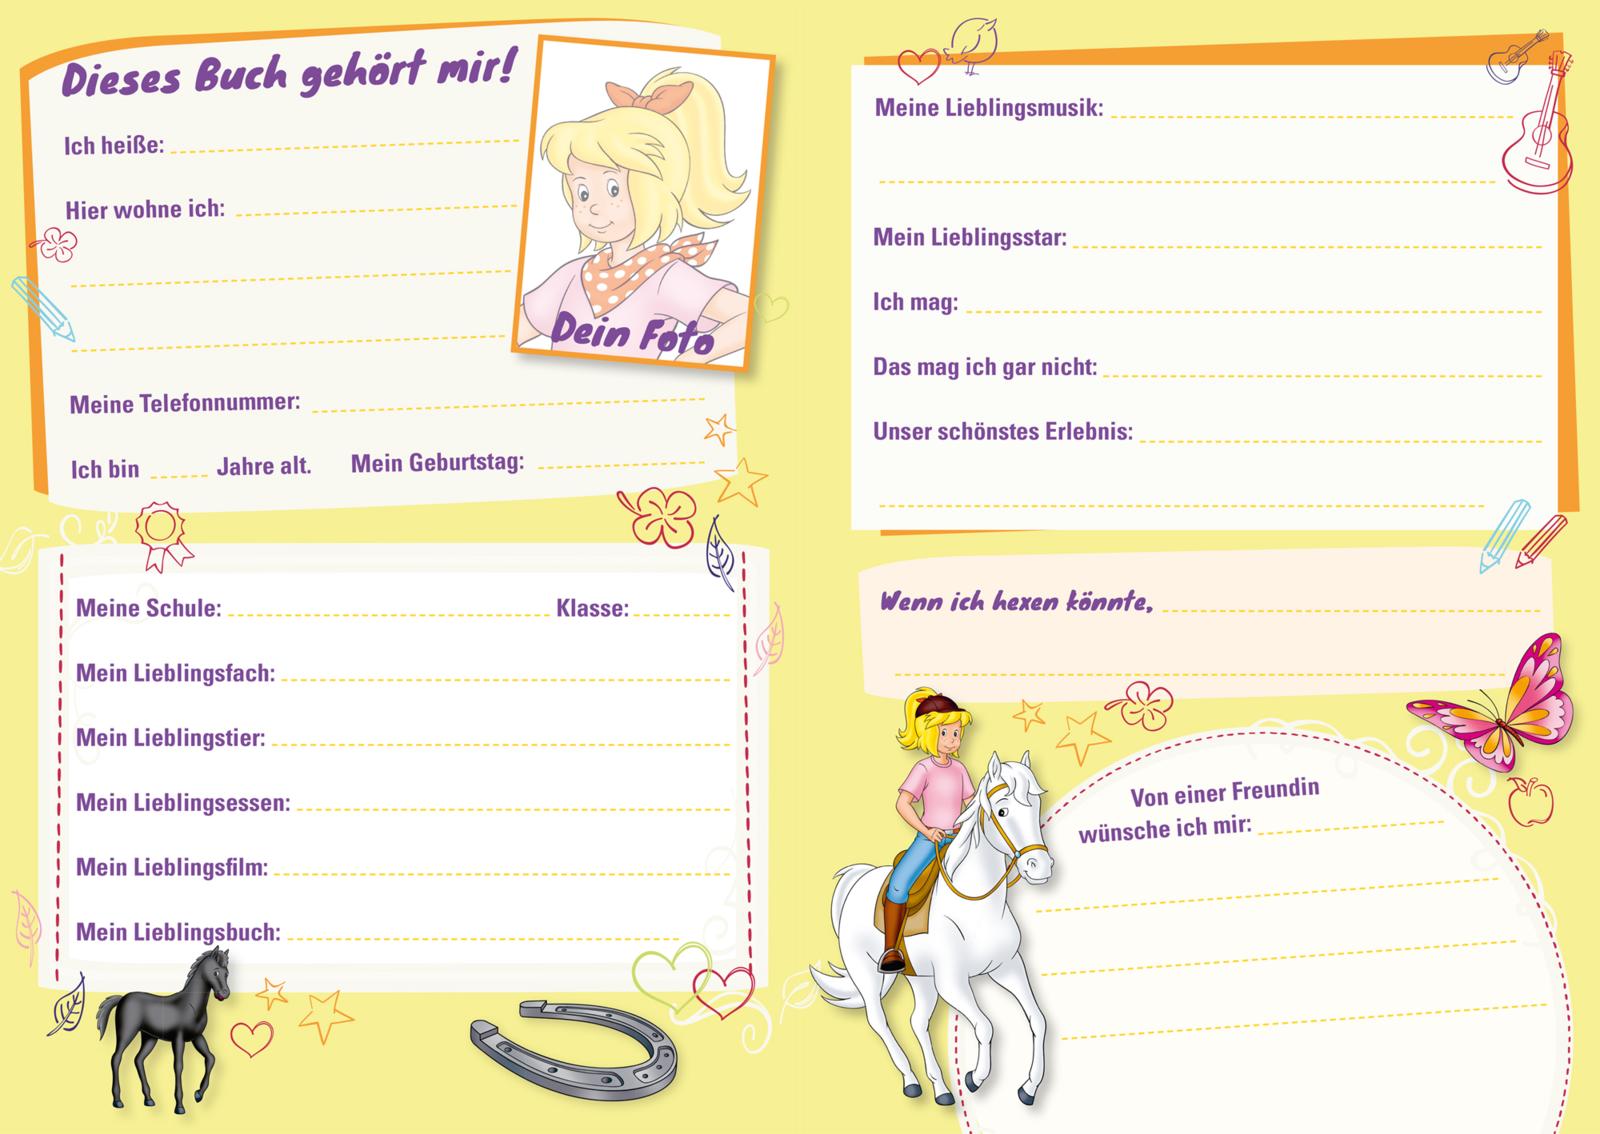 Dieses Buch gehört mir!
Ich heiße:
Hier wohne ich:
Dein Foto
Meine Telefonnummer:
Ich bin Jahre alt. Mein Geburtstag:
Meine Schule: Klasse:
Mein Lieblingsfach:
Mein Lieblingstier:
Mein Lieblingsessen:
Mein Lieblingsfilm:
Mein Lieblingsbuch:
Meine Lieblingsmusik:
Mein Lieblingsstar:
Ich mag:
Das mag ich gar nicht:
Unser schönstes Erlebnis:
Wenn ich hexen könnte,
Von einer Freundin
wünsche ich mir: